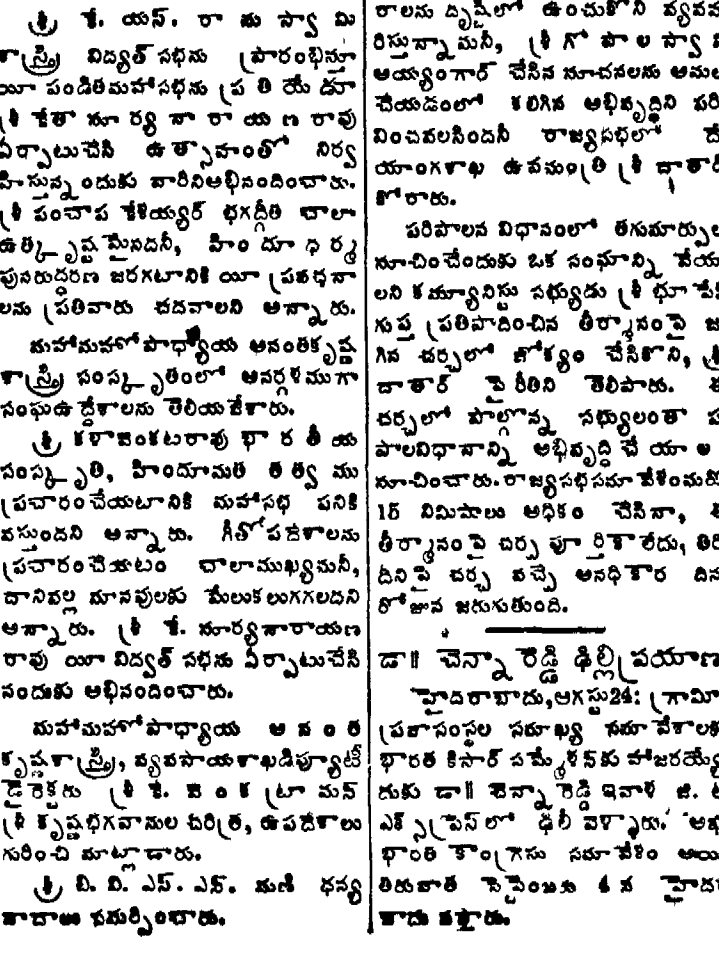 శ్రీ కే. యస్. రామస్వామి
శాస్త్రి విద్యత్ సభను ప్రారంభిస్తూ
యీ పండితమహాసభను ప్రతియేడూ
శ్రీ కేతా సూర్యనారాయణరావు
ఏర్పాటుచేసి ఉత్సాహంతో నిర్వ
హిస్తున్నందుకు వారినిఅభినందించారు.
శ్రీ పంచాపకేశయ్యర్ భగద్గీతి చాలా
ఉత్కృష్టమైనదనీ, హిందూధర్మ
పునరుద్ధరణ జరగటానికి యీ ప్రవధనా
లను ప్రతివారు చదవాలని అన్నారు.
మహామహోపాధ్యాయ అనంతకృష్ణ
శాస్త్రి సంస్కృతంలో అనర్గళముగా
సంఘఉద్దేశాలను తెలియచేశారు.
శ్రీ కళావెంకటరావు భారతీయ
సంస్కృతి, హిందూమత తత్వము
ప్రచారంచేయటానికి మహాసభ పనికి
వస్తుందని అన్నారు. గీతోపదేశాలను
ప్రచారంచేయటం చాలాముఖ్యమనీ,
దానివల్ల మానవులకు మేలుకలుగగలదని
అన్నారు. శ్రీ కే. సూర్యనారాయణ
రావు యీ విద్వత్ సభను ఏర్పాటుచేసి
నందుకు అభినందించారు.
మహామహోపాధ్యాయ అనంత
కృష్ణశాస్త్రి, వ్యవసాయశాఖడిప్యూటీ
డైరెక్టరు శ్రీ కే. వెంకట్రామన్
శ్రీ కృష్ణభగవానుల చరిత్ర, ఉపదేశాలు
గురించి మాట్లాడారు.
శ్రీ బి. వి. ఎస్. ఎస్. మణి ధన్య
వాదాలు సమర్పించారు.
రాలను దృష్టిలో ఉంచుకొని వ్యవహ
రిస్తున్నామనీ, శ్రీ గోపాలస్వామి
అయ్యంగార్ చేసిన సూచనలను అమలు
చేయడంలో కలిగిన అభివృద్ధిని పరి
వించవలసిందనీ రాజ్యసభలో దే
యాంగశాఖ ఉపమంత్రి శ్రీ దాతార్
కోరారు.
పరిపాలన విధానంలో తగుమార్పుల
సూచించేందుకు ఒక సంఘాన్ని వేయ
లని కమ్యూనిస్టు సభ్యుడు శ్రీ భూపేశ్
గుప్త ప్రతిపాదించిన తీర్మానంపై జ
గిన చర్చలో జోక్యం చేసికొని, శ్రీ
దాతార్ పై రీతిని తెలిపారు. ఈ
చర్చలో పాల్గొన్న సభ్యులంతా ప
పాలవిధానాన్ని అభివృద్ధి చేయాల
సూచించారు. రాజ్యసభసమావేశంమరో
15 నిమిషాలు అధికం చేసినా, ఈ
తీర్మానంపై చర్చ పూర్తికాలేదు, తిరి
దీనిపై చర్చ వచ్చే అనధికార దిన
రోజున జరుగుతుంది.
డా॥ చెన్నారెడ్డి ఢిల్లీ ప్రయాణ
హైదరాబాదు, ఆగస్టు24: గ్రామీ
ప్రజాసంస్థల సమాఖ్య సమావేశాలకు
భారత కిసార్ సమ్మేళన్‌కు హాజరయ్యే
దుకు డా॥ చెన్నారెడ్డి ఇవాళ జి. టి
ఎక్స్‌ప్రెస్‌లో ఢిల్లీ వెళ్ళారు. అఖ
భారత కాంగ్రెసు సమావేశం అయి
తిరువాత సెప్టెంబరు 6 న హైద
బాదు వస్తారు.